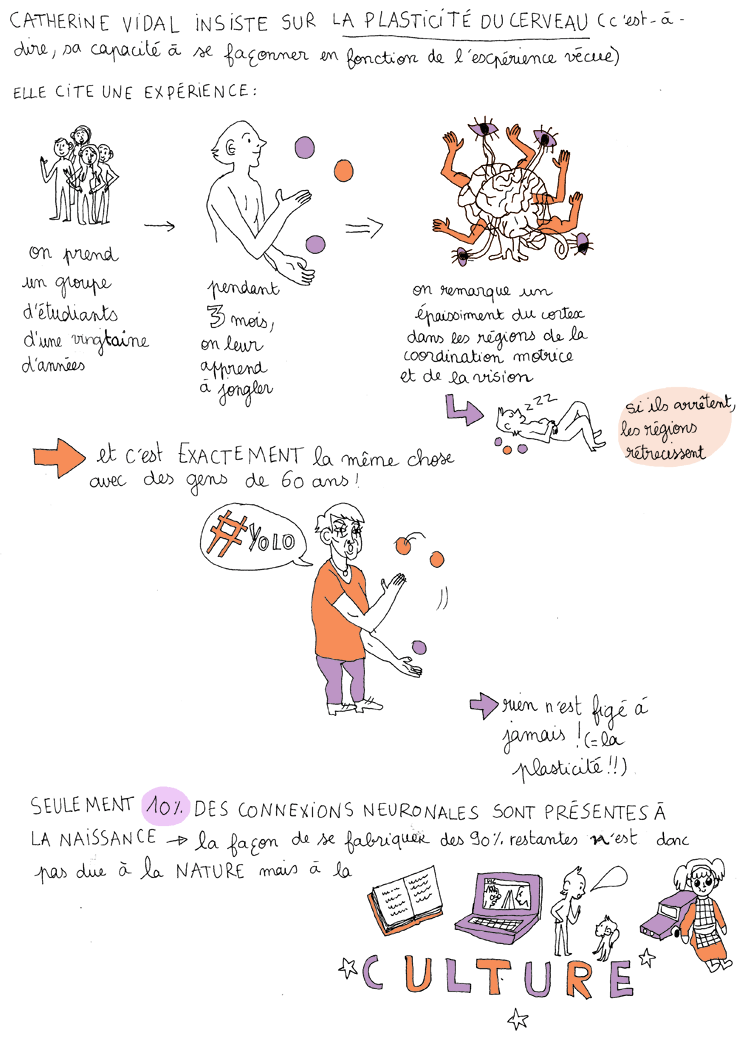 CATHERINE VIDAL INSISTE SUR LA PLASTICITÉ DU CERVEAU (c'est-à-
dire, sa capacité à se façonner en fonction de l'expérience vécue)
ELLE CITE UNE EXPÉRIENCE :
on prend
un groupe
d'étudiants
d'une vingtaine
d'années
pendant
3 mois,
on leur
apprend
à jongler
on remarque un
épaissiment du cortex
dans les régions de la
coordination motrice
et de la vision
zzz
si ils arrêtent,
les régions
rétrecissent
et c'est EXACTEMENT la même chose
avec des gens de 60 ans !
#YOLO
rien n'est figé à
jamais ! (= la
plasticité !!)
SEULEMENT 10% DES CONNEXIONS NEURONALES SONT PRÉSENTES À
LA NAISSANCE → la façon de se fabriquer des 90% restantes n'est donc
pas due à la NATURE mais à la
CULTURE